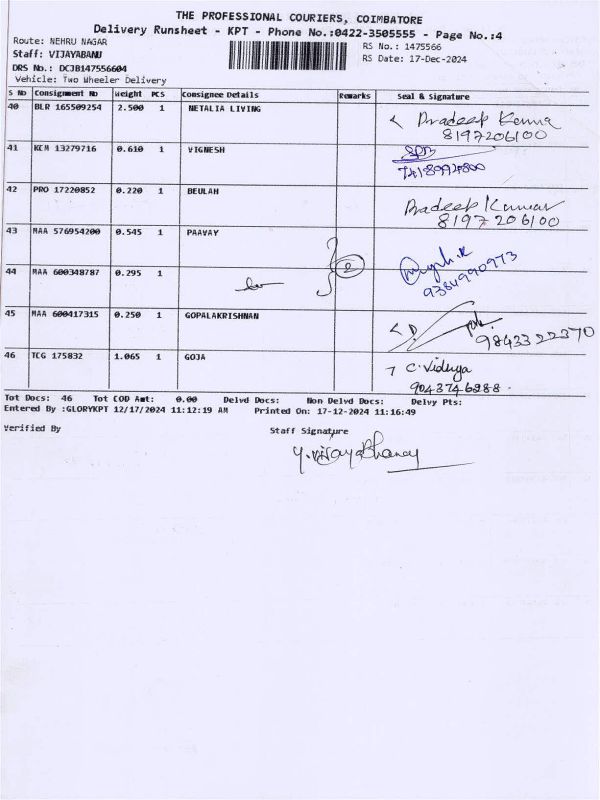 THE PROFESSIONAL COURIERS, COIMBATORE
Delivery Runsheet - KPT - Phone No.:0422-3505555 - Page No.:4
Route: NEHRU NAGAR
RS No.: 1475566
Staff: VIJAYABANU
RS Date: 17-Dec-2024
DRS No.: DCJB147556604
Vehicle: Two Wheeler Delivery
S No Consignment No Weight PCS Consignee Details Remarks Seal & Signature
40 BLR 165509254 2.500 1 NETALIA LIVING
Pradeep Kumar
8197206100
41 KCM 13279716 0.610 1 VIGNESH
42 PRO 17220852 0.220 1 BEULAH
Pradeep Kumar
8197206100
43 MAA 576954200 0.545 1 PAAVAY
2
9384990973
44 MAA 600348787 0.295 1
45 MAA 600417315 0.250 1 GOPALAKRISHNAN
9843322370
46 TCG 175832 1.065 1 GOJA
C. Vidhya
9043746288.
Tot Docs: 46 Tot COD Amt: 0.00 Delvd Docs: Non Delvd Docs: Delvy Pts:
Entered By :GLORYKPT 12/17/2024 11:12:19 AM Printed On: 17-12-2024 11:16:49
Verified By Staff Signature